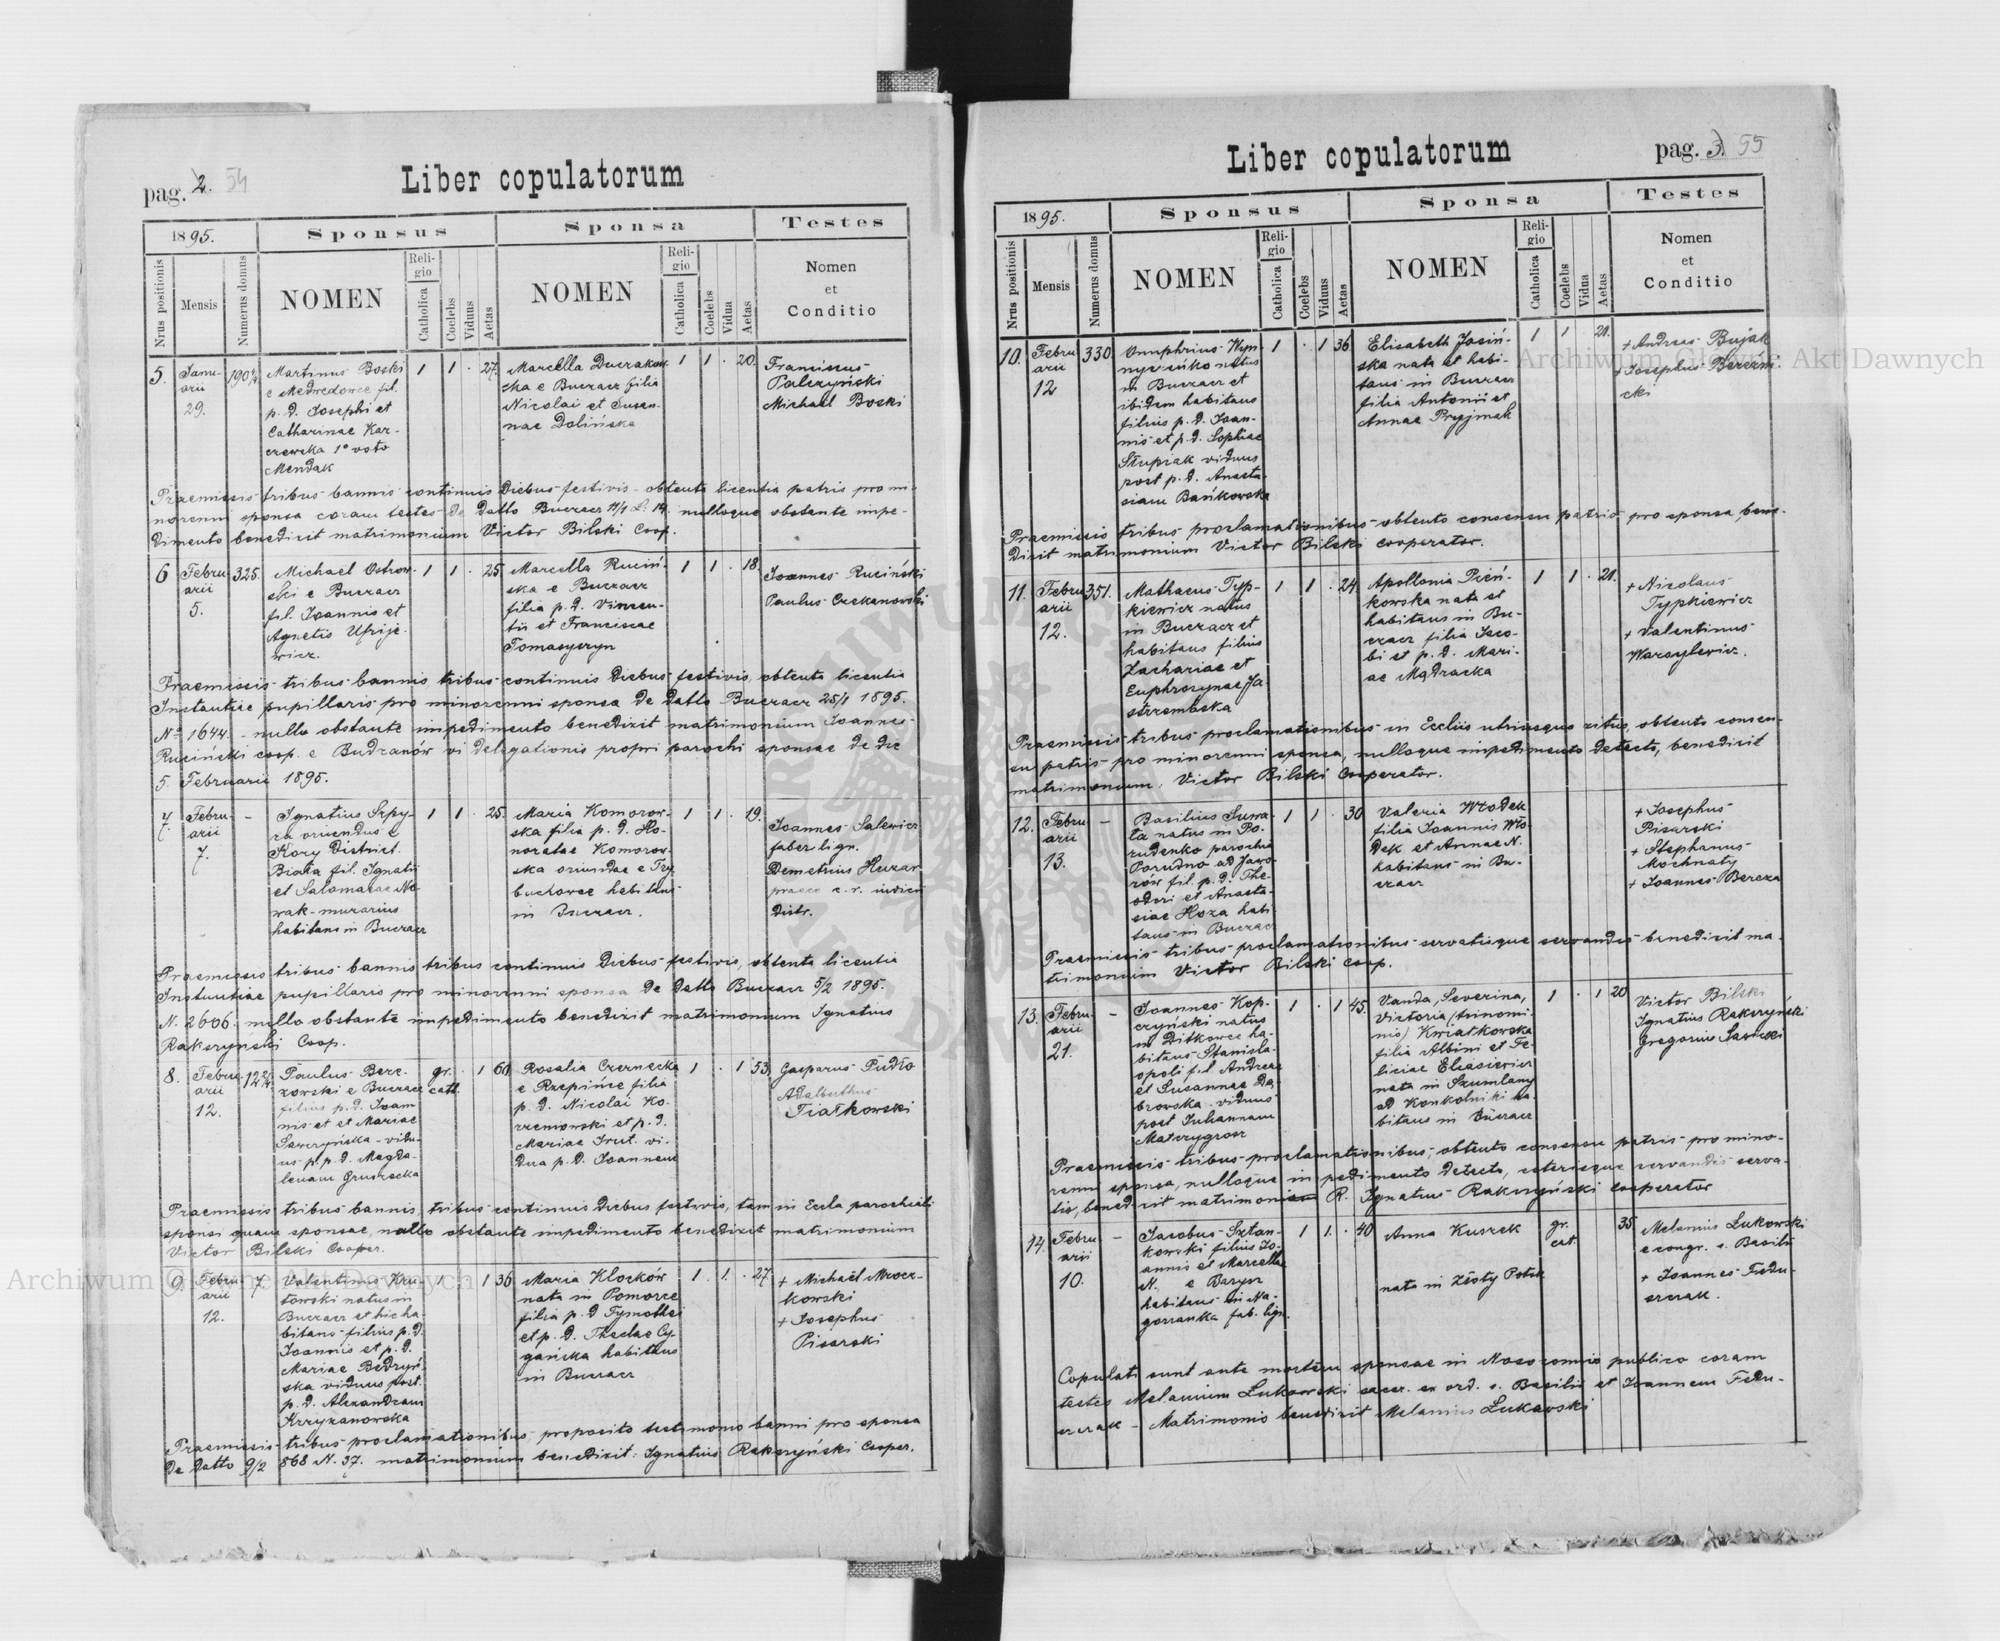 pag. 2. 54
Liber copulatorum
1895.
Sponsus
Sponsa
Testes
Nrus positionis
Mensis
Numerus domus
NOMEN
Religio
Catholica
Coelebs
Viduus
Aetas
NOMEN
Religio
Catholica
Coelebs
Vidua
Aetas
Nomen
et
Conditio
5. Januarii 29.
Martinus Boski
e Medvedovce fil.
p. d. Josephi et
Catharinae Kar-
czewska 1º voto
Mendak
1 1 . 27.
ska e Buczacz filia
Nicolai et Susan-
nae Dolińska
1 1 . 20.
Franciscus
Palczyński
Michael Boski
Praemissis tribus bannis continuis diebus festivis obtenta licentia patris pro mi-
norenni sponsa coram testes de datto Buczacz
nulloque obstante impe-
dimento benedixit matrimonium Victor Bilski Coop.
6 Februarii 5.
325.
Michael Ostrow-
ski e Buczacz
fil. Joannis et
Agnetis
1 1 . 25
Marcella Ruciń-
ska e Buczacz
filia p. d. Vincen-
tii et Franciscae
Tomaszczyn
1 1 . 18.
Joannes Ruciński
Paulus Czekanowski
Praemissis tribus bannis, tribus continuis diebus festivis, obtenta licentia
Instantiae pupillaris pro minorenni sponsa de datto Buczacz 25/1 1895.
Nº 1644. - nullo obstante impedimento benedixit matrimonium Joannes
Ruciński coop. e Budzanów vi delegationis proprii parochi sponsae de die
5. Februarii 1895.
7. Februarii 7.
-
Ignatius Szpy-
ra oriundus e
Kozy District.
Biała fil. Ignatii
et Salomeae No-
wak - murarius
habitans in Buczacz
1 1 . 25.
Maria Komorow-
ska filia p. d. Ho-
noratae Komorow-
ska oriundae e Try-
buchowce habitans
in Buczacz.
1 1 . 19.
Joannes Salewicz
faber lign.
Demetrius Huzar
praeco c. r. iudicii
distr.
Praemissis tribus bannis tribus continuis diebus festivis, obtenta licentia
Instantiae pupillaris pro minorenni sponsa de datto Buczacz 5/2 1895.
N. 2606. nullo obstante impedimento benedixit matrimonium Ignatius
Rakszyński Coop.
8. Februarii 12.
Paulus Bere-
zowski e Buczacz
filius p. d. Joan-
nis et et Mariae
Sawczyńska - vidu-
us p. p. d. Magda-
lenam Gruszecka
gr. cath. . 1 60
Rosalia Czernecka
e Rzepińce filia
p. d. Nicolai Ko-
rzeniowski et p. d.
Mariae Irut. vi-
dua p. d. Joannem
1 . 1 53.
Gasparus Pudło
Adalberthus
Fiałkowski
Praemissis tribus bannis, tribus continuis diebus festivis, tam in Eccla parochiali
sponsi quam sponsae, nullo obstante impedimento benedixit matrimonium
Victor Bilski Cooper.
9. Februarii 12.
7.
Valentinus Kru-
towski natus in
Buczacz et hic ha-
bitans filius p. d.
Joannis et p. d.
Mariae Bedryń-
ska viduus post.
p. d. Alexandram
Krzyżanowska
1 . 1 36
Maria Klocków
nata in Pomorce
filia p. d Tymothei
et p. d. Theclae Cy-
gańska habitans
in Buczacz
1 . 1. . 27.
+ Michaël Mrocz-
kowski
+ Josephus
Pisarski
Praemissis tribus proclamationibus, proposito testimonio banni pro sponsa
de datto 9/2 868 N. 37. matrimonium benedixit: Ignatius Rakszyński Cooper.
Liber copulatorum
pag. 3. 55
1895.
Sponsus
Sponsa
Testes
Nrus positionis
Mensis
Numerus domus
NOMEN
Religio
Catholica
Coelebs
Viduus
Aetas
NOMEN
Religio
Catholica
Coelebs
Vidua
Aetas
Nomen
et
Conditio
10. Februarii 12
330.
Onuphrius
natus
in Buczacz et
ibidem habitans
filius p. d. Joan-
nis et p. d. Sophiae
Słupiak viduus
post p. d. Anasta-
siam Bańkowska
1 . 1 36
Elisabeth Jasiń-
ska nata et habi-
tans in Buczacz
filia Antonii et
Annae Pryjmak
1 1 21.
+ Andreas Bujak
+ Josephus
Praemissis tribus proclamationibus obtento consensu patris pro sponsa, bene-
dixit matrimonium Victor Bilski cooperator.
11. Februarii 12.
351.
Mathaeus Typ-
kiewicz natus
in Buczacz et
habitans filius
Zachariae et
Euphrosynae Ja-
strzembska
1 1 . 24
Apollonia Pień-
kowska nata et
habitans in Bu-
czacz filia Jaco-
bi et p. d. Mari-
ae Mądracka
1 1 . 21.
+ Nicolaus
Typkiewicz
+ Valentinus
Warzylewicz.
Praemissis tribus proclamationibus in Ecclis utriusque ritus, obtento consen-
su patris pro minorenni sponsa, nulloque impedimento detecto, benedixit
matrimonium. Victor Bilski Cooperator.
12. Februarii 13.
-
Basilius Suwa-
ła natus in Po-
rudenko parochia
Porudno ad Jawo-
rów fil. p. d. The-
odori et Anasta-
siae Hoza habi-
tans in Buczacz
1 1 . 30
Valeria Włodek
filia Joannis Wło-
dek et Annae N.
habitans in Bu-
czacz
+ Josephus
Pisarski
+ Stephanus
Mochnaty
+ Joannes Bereza
Praemissis tribus proclamationibus servatisque servandis benedixit ma-
trimonium Victor Bilski Coop.
13. Februarii 21.
-
Joannes Kop-
czyński natus
in Ditkowce ha-
bitans Stanisla-
opoli fil. Andreae
et Susannae Da-
browska - viduus
post Juliannam
Matczygrosz
1 . 1 45.
Vanda, Severina,
Victoria (trinomi-
nis) Kwiatkowska
filia Albini et Fe-
liciae Eliasiewicz
nata in Szumlany
ad Konkolniki ha-
bitans in Buczacz
1 . 1 20
Victor Bilski
Ignatius Rakszyński
Gregorius Sawicki
Praemissis tribus proclamationibus, obtento consensu patris pro mino-
renni sponsa, nulloque impedimento detecto, ceterisque servandis serva-
tis, benedixit matrimonium R. Ignatius Rakszyński cooperator
14. Februarii 10.
-
Jacobus Sztan-
kowski filius Jo-
annis et Marcella
N. e Barysz
habitans in Na-
gorzanka fab. lign.
1 1. . 40
Anna Kuszek
nata in Złoty Potok
gr. cat. 35.
Melanius Lukowski
e congr. s. Basilii
+ Joannes Fedu-
szczak.
Copulati sunt ante mortem sponsae in Nosocomio publico coram
testes Melanium Lukowski sacer. ex ord. s. Basilii et Joannem Fedu-
szczak - Matrimonio benedixit Melanius Lukowski
Archiwum Główne Akt Dawnych
Archiwum Główne Akt Dawnych